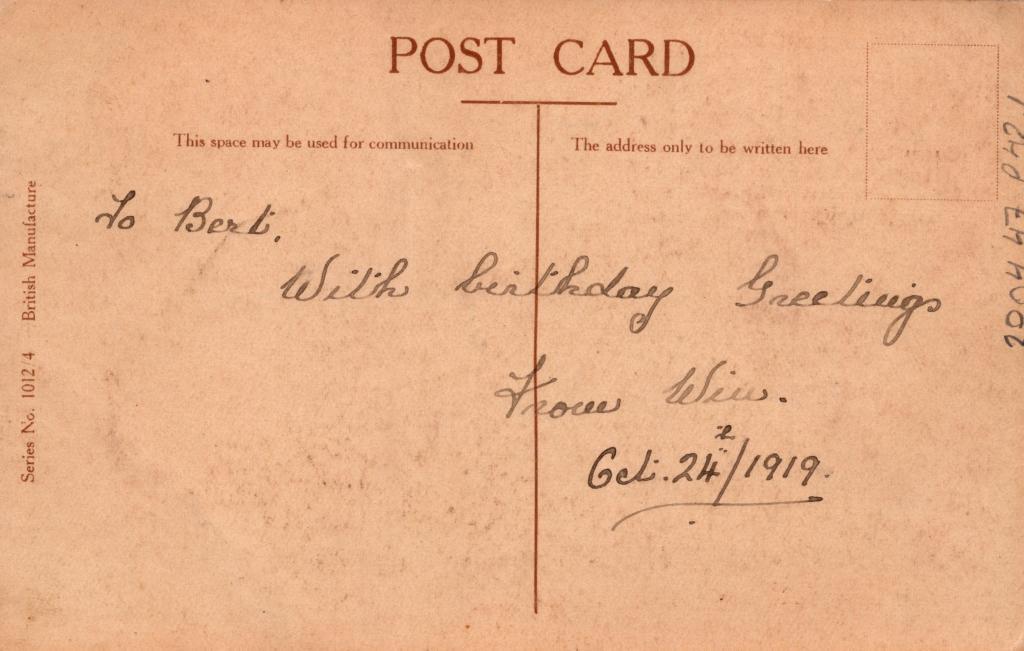 POST CARD
This space may be used for communication
The address only to be written here
To Bert.
With birthday Greetings
From Win.
Oct. 24th/1919.
Series No. 1012/4 British Manufacture
2004 47 P421